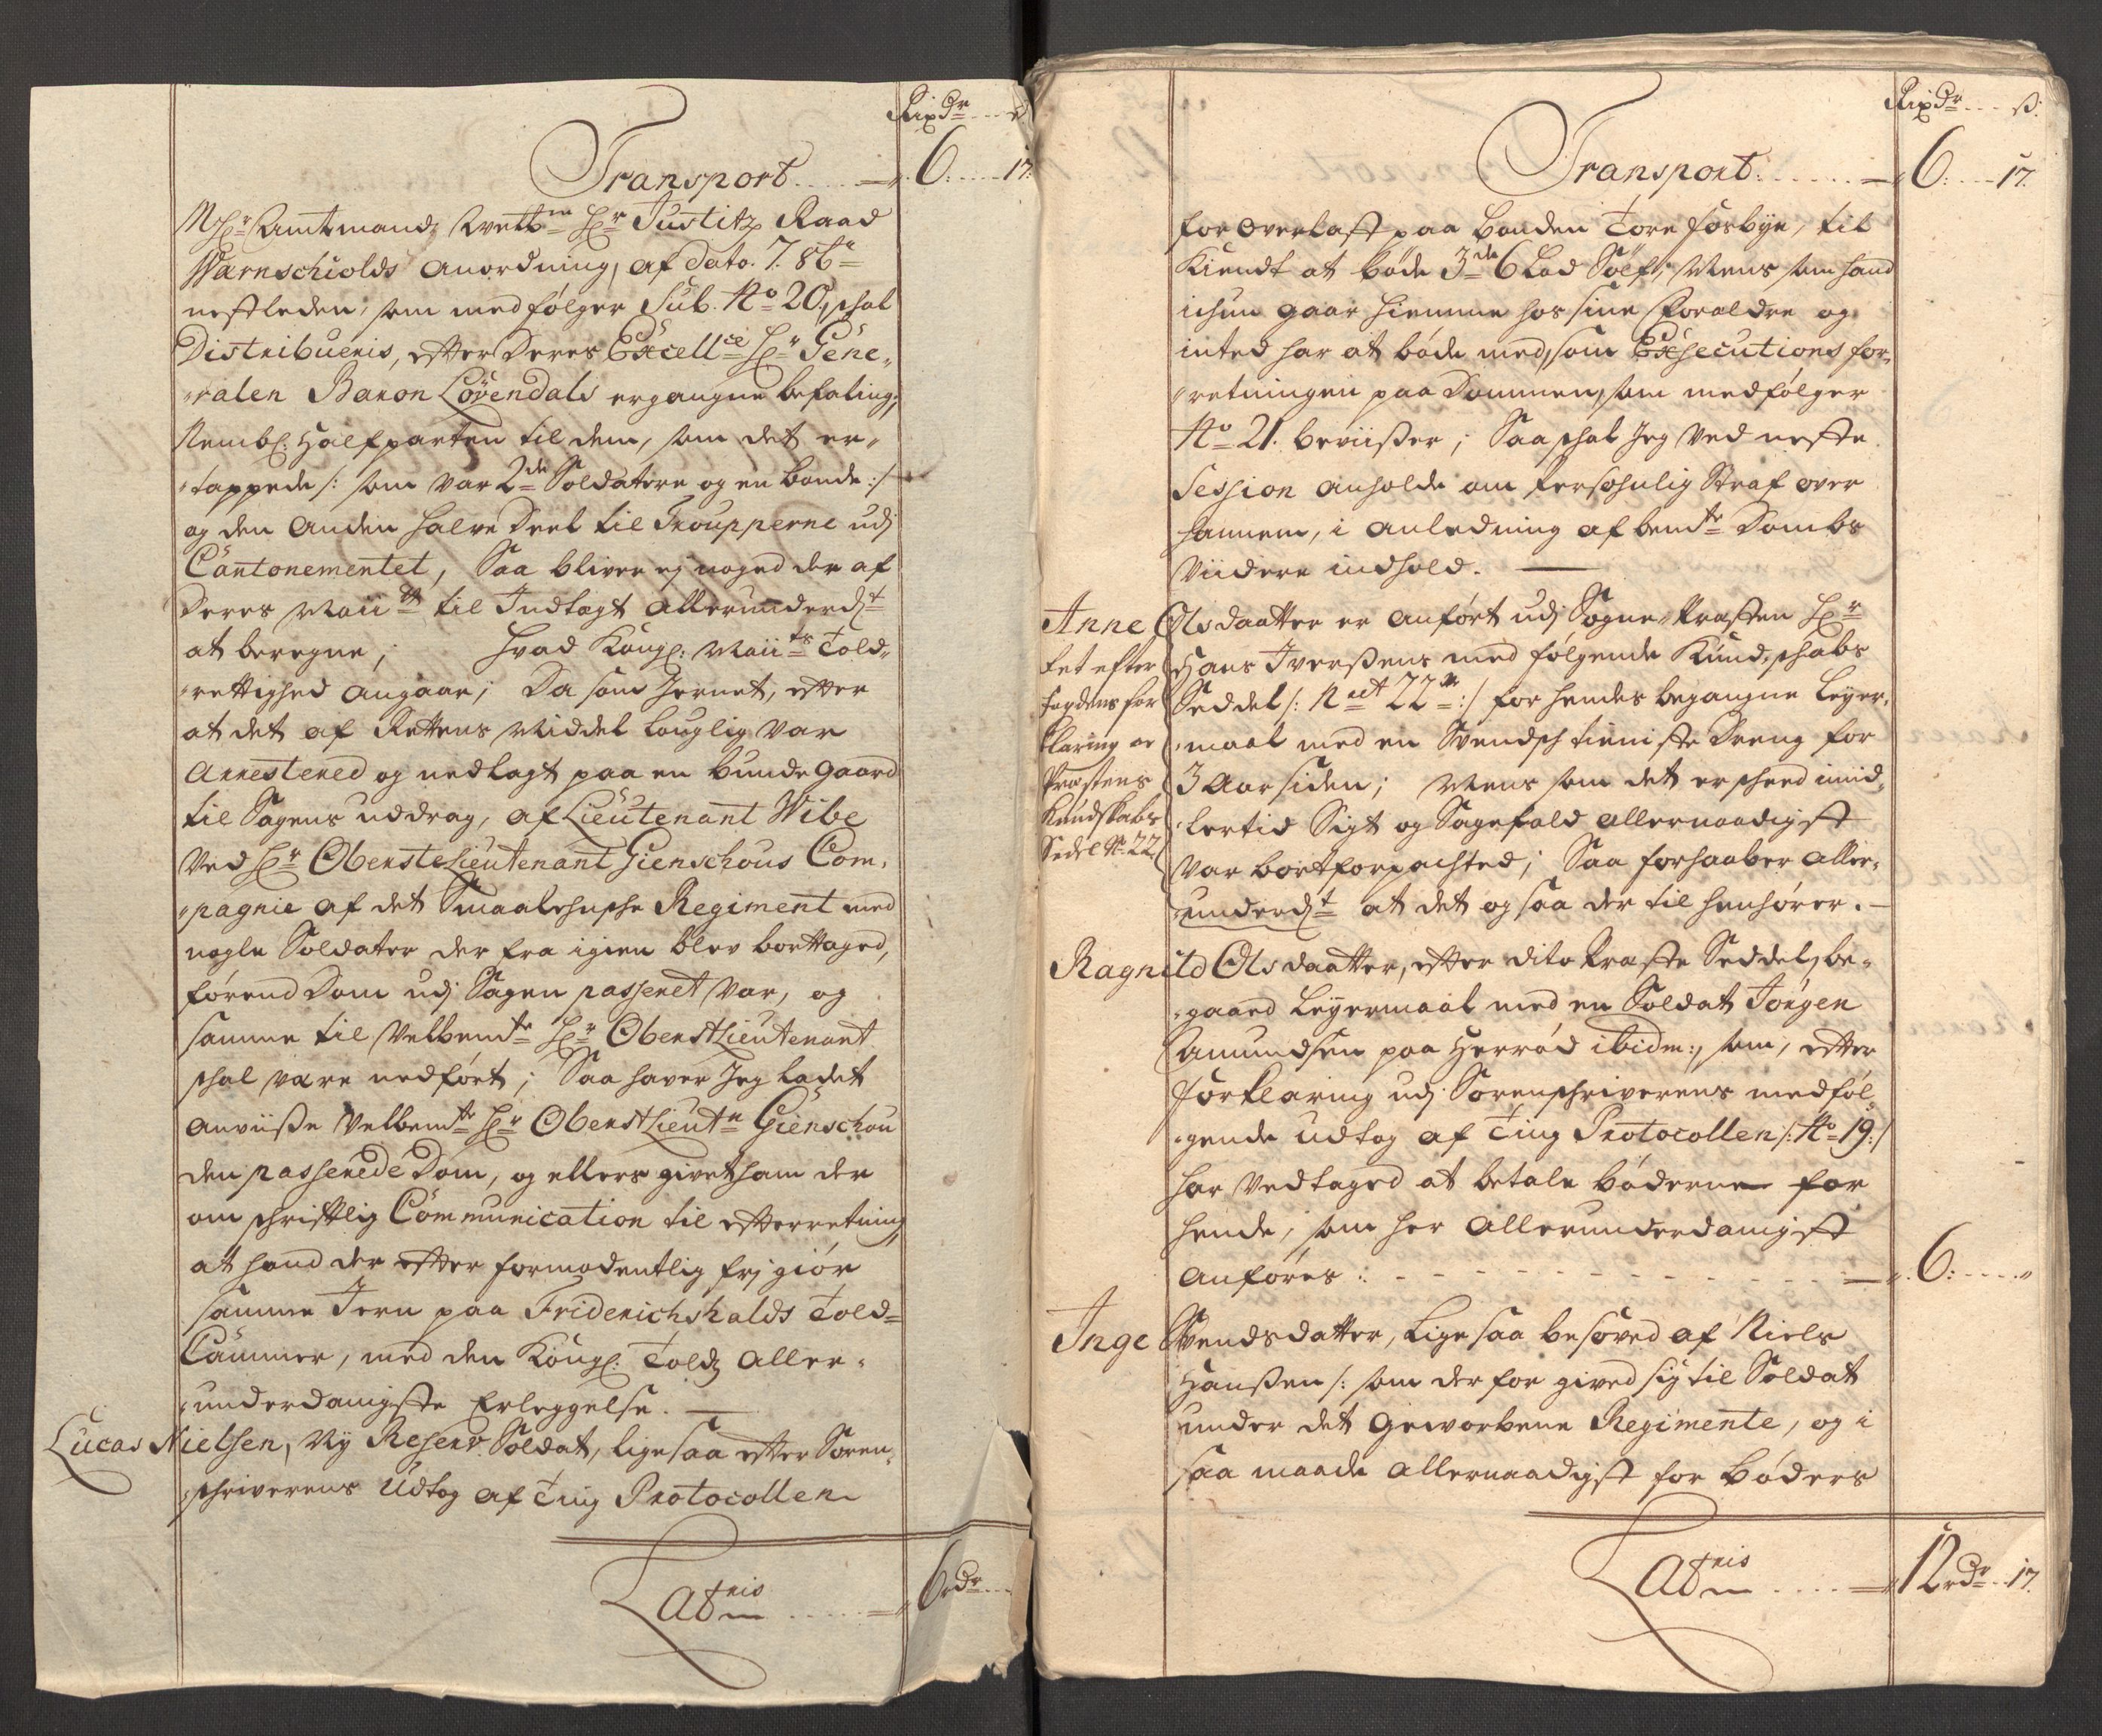 RixDr ... ß
Transport ..... 6: .... 17:
Hr Amtmands Welbne Hr Justitz Raad
Wærnschiolds anordning, af dato. 7. 8br
nestleden, som medfølger Sub. No 20, schal
Distribueris, efter Deres Excellce Hr Gene-
-ralen Baron Løvendals ergangne befaling,
Nembl: Halfparten til dem, som det er-
-tappede /: som var 2de Soldatere og en bonde :/
og den anden halve deel til Troupperne udj
Cantonementet, Saa bliver ej noged der af
Deres Maiitt til Indtægt allerunderdt
at beregne; hvad Kongl: Maiits Told-
-rettighed angaar; Da som Jernet, efter
at det af Rettens Middel louglig var
Arrestered og nedlagt paa en bundegaard
til Sagens uddrag, af Lieutenant Wibe
ved Hr Oberstelieutenant Gienschous Com-
-pagnie af det Smaalehnsche Regiment med
nogle Soldater der fra igien blev borttaged,
førend Dom udj Sagen passeret var, og
samme til Velbemte Hr Oberstlieutenant
schal være nedført; Saa haver Jeg ladet
anviisse Velbemte Hr Oberstlieutn Gienschou
den passerede Dom, og ellers givet ham der
om schriftlig Communication til efterretning,
at hand der efter formodentlig frj giør
samme Jern paa Friderichshalds Told-
Cammer, med den Kongl: Tolds aller-
-underdanigste Erleggelse.
Lucas Nielsen, Ny Reserv Soldat, ligesaa efter Soren-
-schriverens Udtog af Ting Protocollen
Latris ..... 6rdr ...
RixDr ... ß:
Transport: ...... 6: ... 17.
for overlast paa bonden Tore Forbye, til
kiendt at bøde 3de 6 Lod Sølf; Mens som hand
ichun gaar hiemme hos sine Forældre og
inted har at bøde med, som Exsecutions for-
-retningen paa Dommen, som medfølger
No 21. beviisser; Saa schal Jeg ved neste
Session anholde om Personlig Straf over
hannem, i anledning af bemte Dombs
viidere indhold.
Anne Olsdaatter er anført udj Sogne-Præsten Hr
Hans Iverssens medfølgende Kund-schabs
Seddel /: Nr 22 :/ for hendes begangne leyer-
-maal med en Svensch tieniste Dreng for
3 Aar siden; Mens som det er scheed imid-
-lertid Sigt og Sagefald allernaadigst
var bortforpachted; Saa forhaaber aller-
-underdt at det og saa der til henhører.
Let efter
fogdens for
klaring oc
Præstens
Kundskabs
Sedel No 22
Ragnild Olsdaatter, efter dito Præste Seddel, be-
-gaaed leyermaal med en Soldat Jørgen
Amundsen paa Herrød ibidm:, som, efter
forklaring udj Sorenschriverens medføl-
-gende Udtog af Ting Protocollen /: No 19 :/
har vedtaged at betale bøderne for
hende, som her allerunderdanigst
anføres: ..... 6: ....
Inge Svendsdatter, ligesaa besøved af Niels
Hanssen /: som der for gived sig til Soldat
under det Geworbene Regimente, og i
saa maade allernaadigst for bøders
Latris ..... 12rdr .. 17.